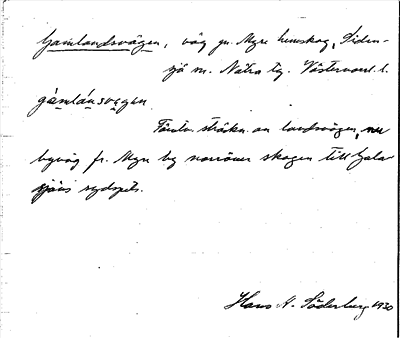 Gamlandsvägen, väg gn. Myre hemskog, Siden-
sjö sn. Nätra tg. Västernorrl. l.
gàmlánsvægen
Förutv. sträckn. av landsvägen, nu
byväg fr. Myre by norröver skogen till Gala-
sjöns sydspets.
Hans A. Söderberg 1930